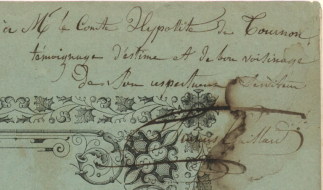 à M.r le Comte Hyppolite de Tournon
témoignage d'estime et de bon voisinage
de Son respectueux Serviteur